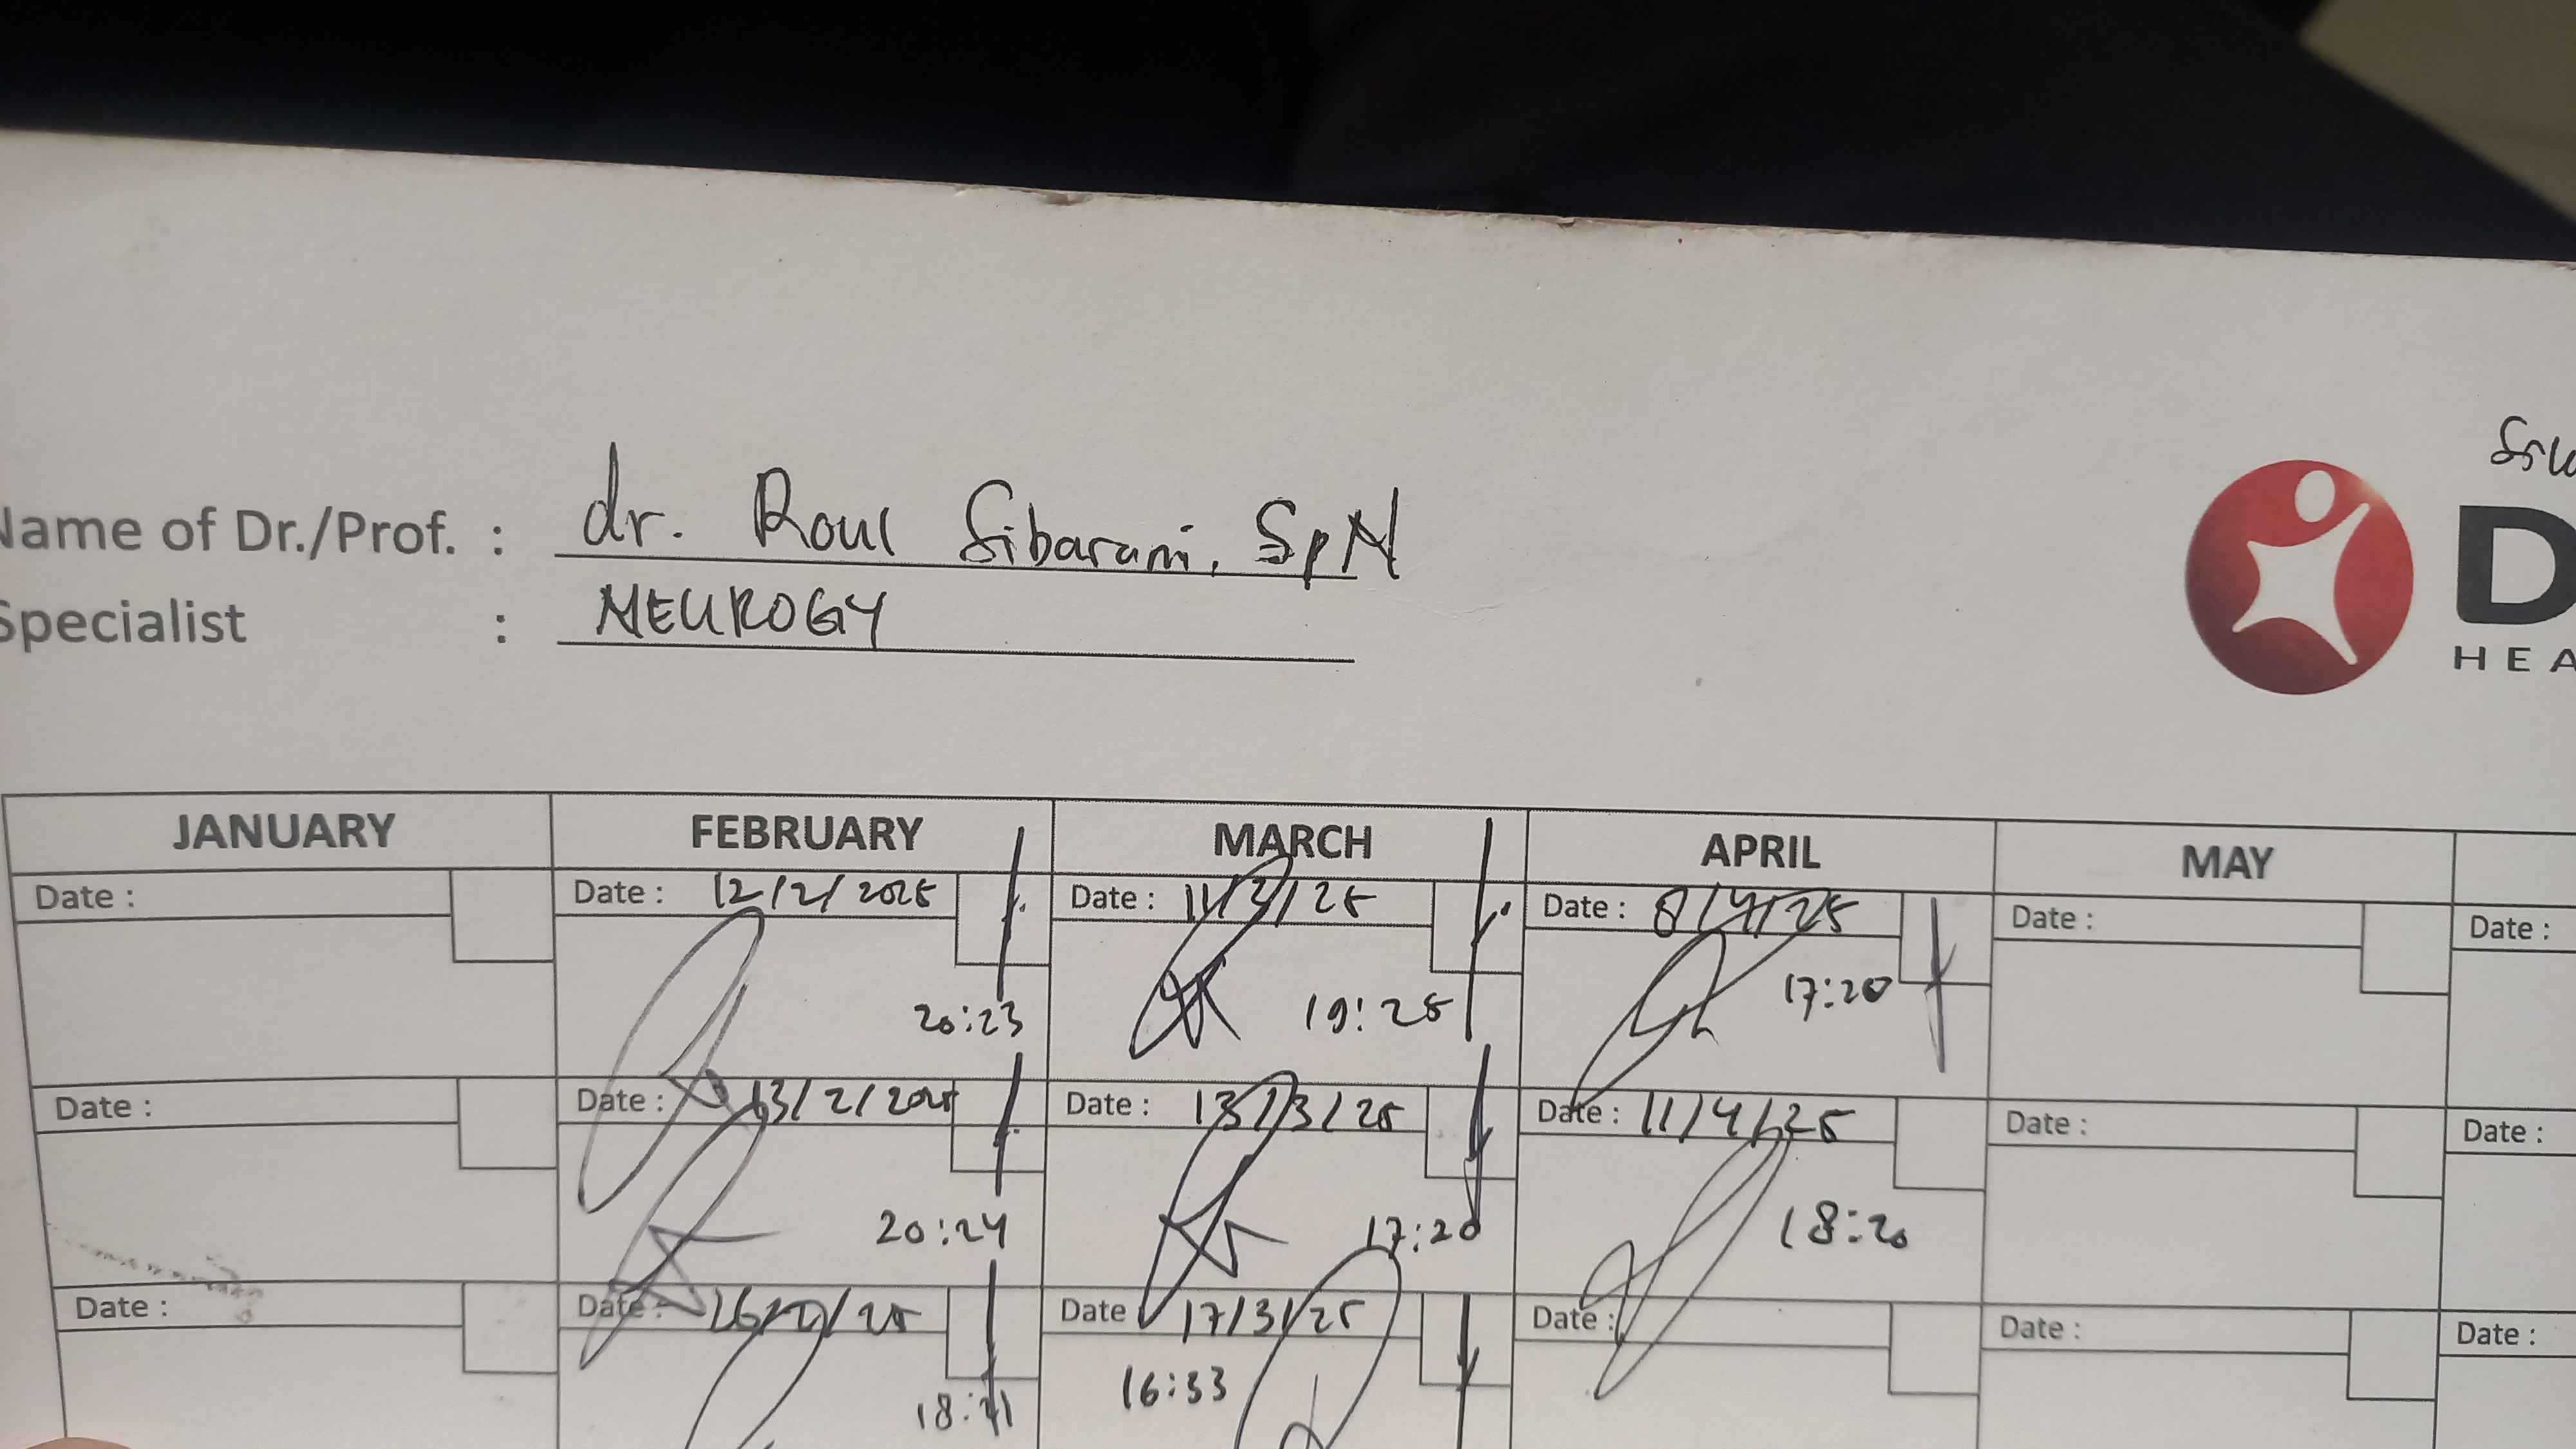 Name of Dr./Prof. : dr. Roul Sibarani, SpN
Specialist : NEUROGY
D
HEA
JANUARY FEBRUARY MARCH APRIL MAY
Date : Date : 12/2/2025 Date : 11/3/25 Date : 8/4/25 Date : Date :
20:23 19:25 17:20
Date : Date : 13/2/2025 Date : 13/3/25 Date : 11/4/25 Date : Date :
20:24 17:20 18:20
Date : Date : 26/2/25 Date 17/3/25 Date : Date : Date :
16:33